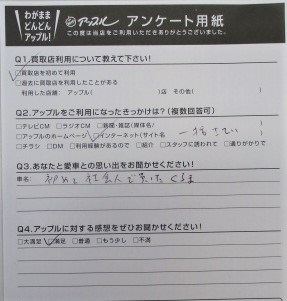 わがまま
どんどん
アップル!
アップル アンケート用紙
この度は当店をご利用いただきありがとうございました。
Q1.買取店利用について教えて下さい!
□買取店を初めて利用
□過去に買取店を利用したことがある
利用した店舗: アップル( )店 その他( )
Q2.アップルをご利用になったきっかけは?(複数回答可)
□テレビCM □ラジオCM □新聞・雑誌(媒体名 )
□アップルのホームページ □インターネット(サイト名 一括さてい )
□チラシ □DM □利用経験があるので □紹介 □スタッフに誘われて □通りがかりで
Q3.あなたと愛車との思い出をお聞かせください!
車名: 初めて社会人で買ったくるま
Q4.アップルに対する感想をお聞かせください!
□大満足 □満足 □普通 □もう少し □不満